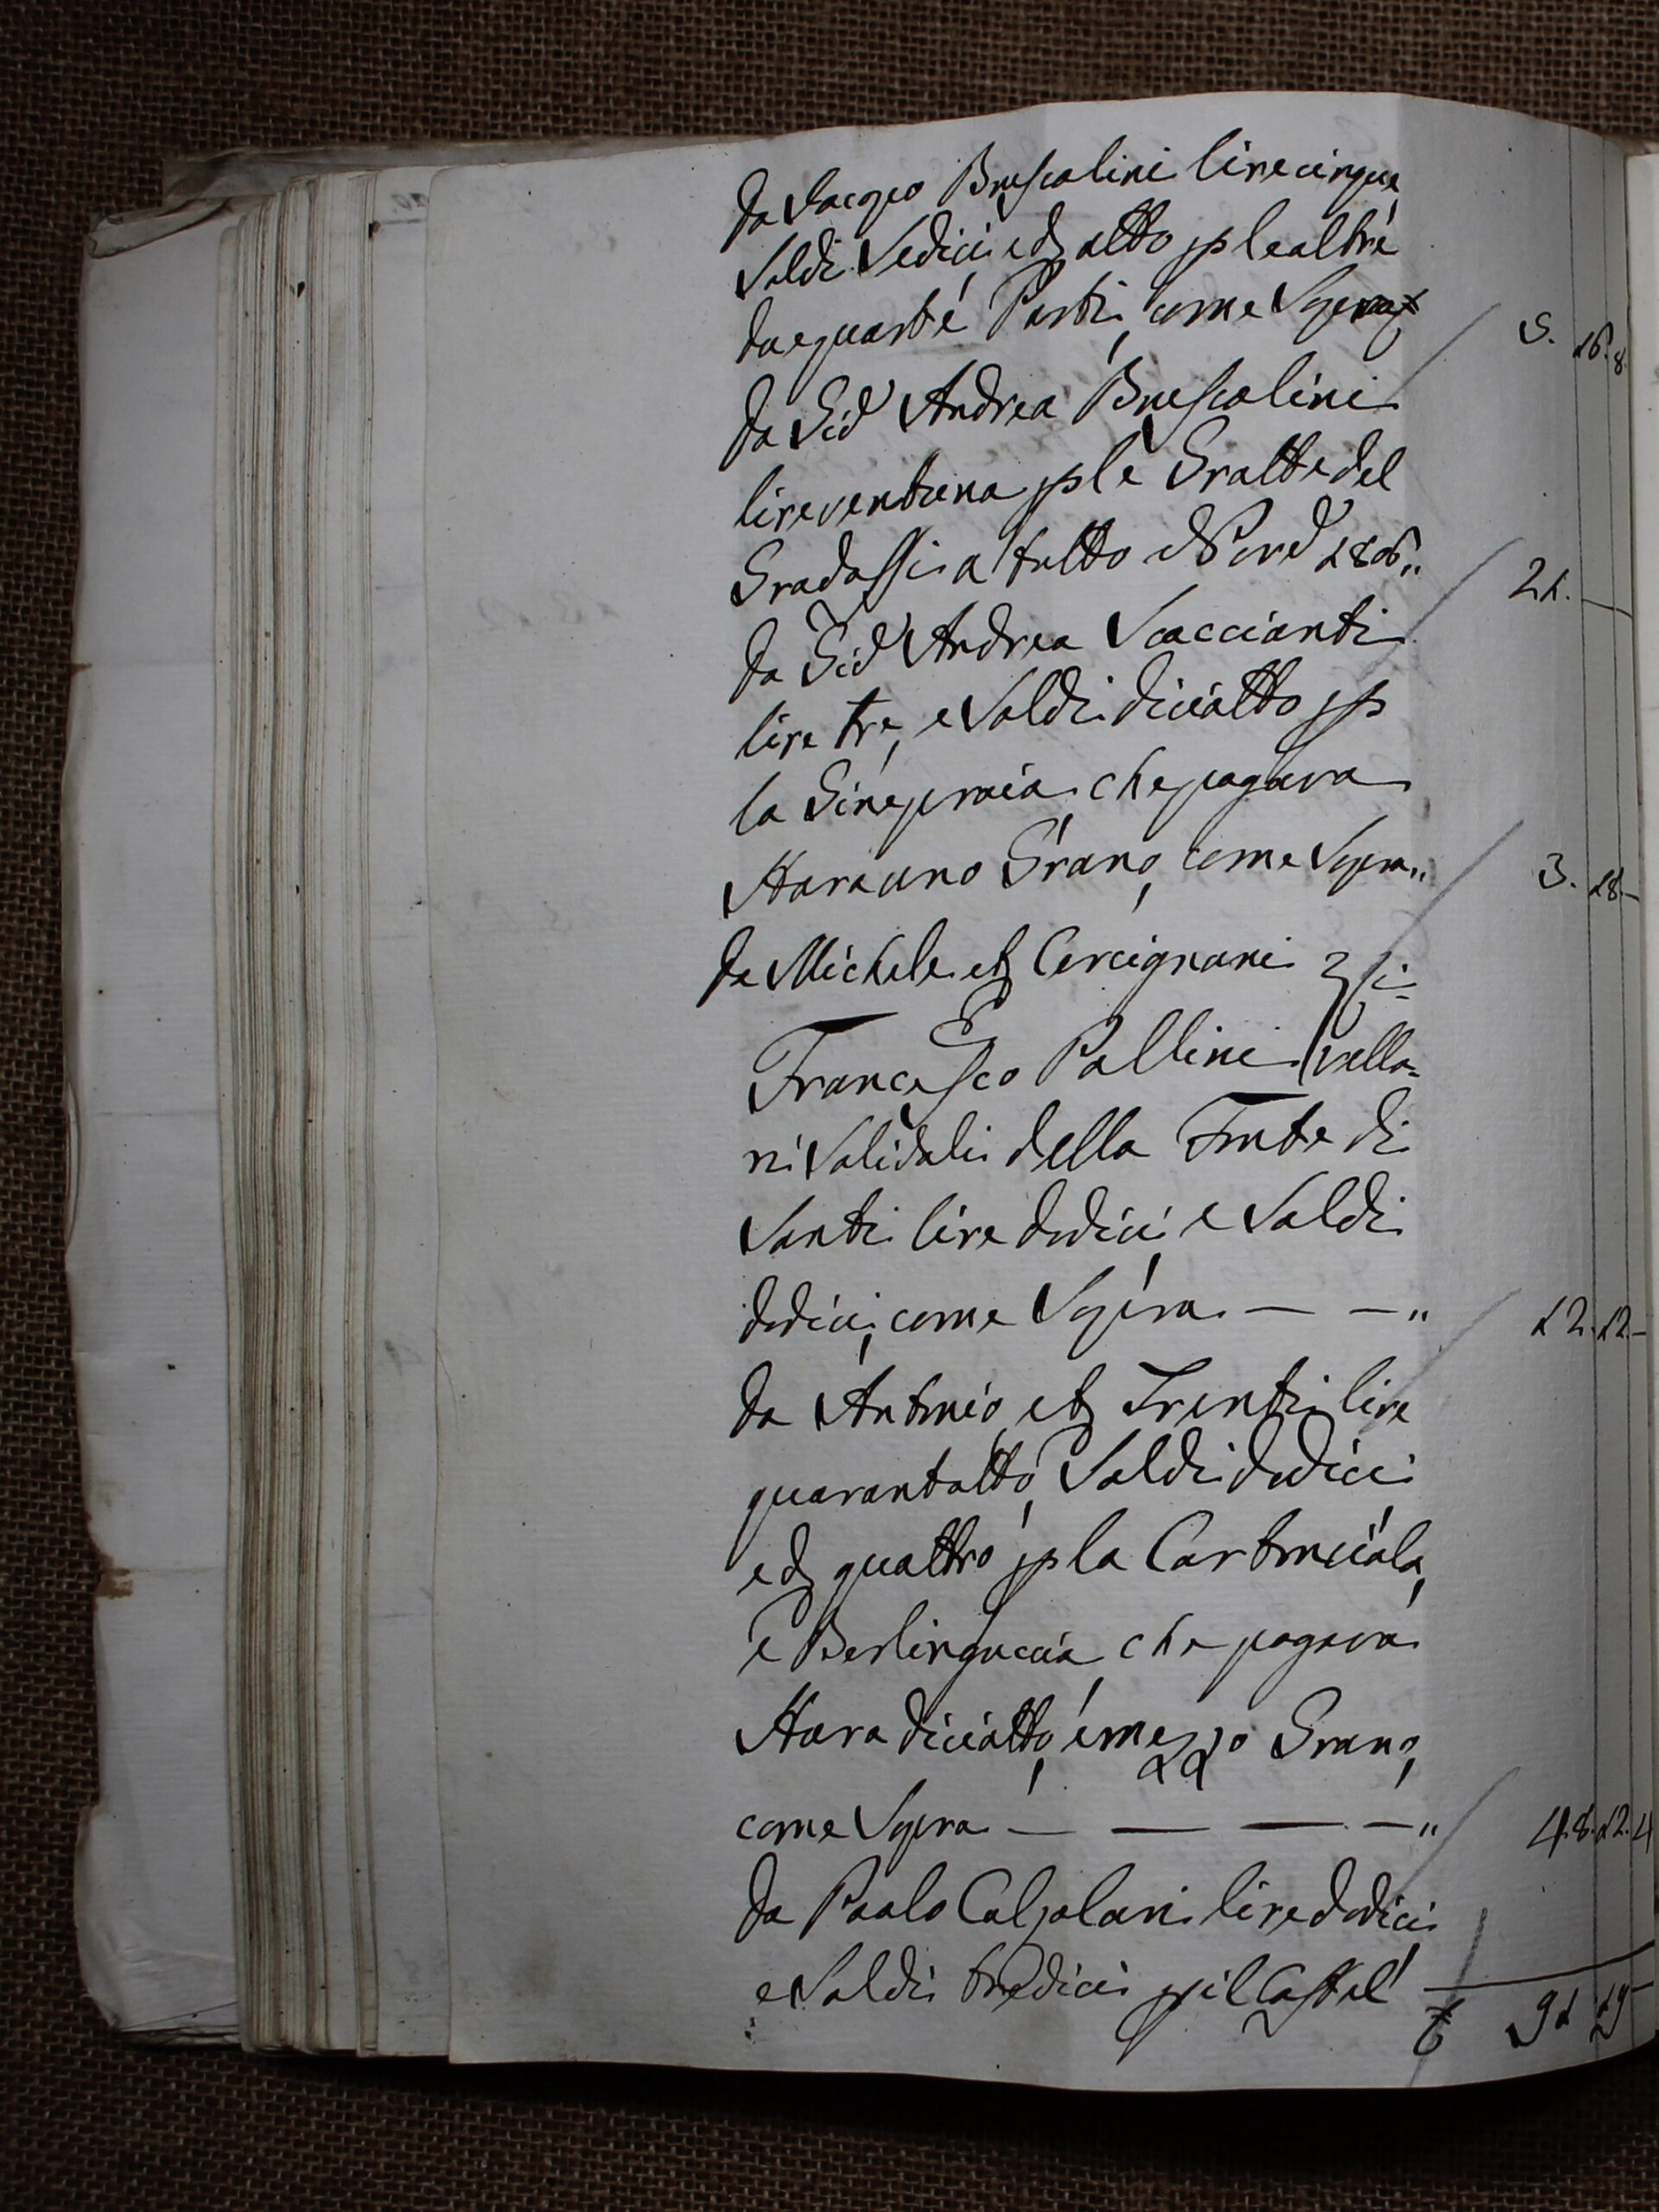 da Jacopo Bruscolini lire cinque,
soldi sedici e d. otto p le altre
due quarte Parti, come sopra £ 5. 16. 8.
da Gio: Andrea Bruscolini
lire ventuna p le Gratte del
Gradassi a tutto 1806 " 21. —
da Gio: Andrea Scaccianti
lire tre, e soldi diciotto p
la Ginepraia che pagava
Stara uno Grano, come sopra " 3. 18 —
da Michele et Cercignani
Francesco Pallini
ni solidali della Fonte di
Santi lire dodici e soldi
dodici, come sopra — — " 12. 12 —
da Antonio et Trenti lire
quarantotto, soldi dodici
e d. quattro p la
e Berlinguccia, che pagava
Stara diciotto, e mezzo Grano,
come sopra — — — — " 48. 12. 4
da Paolo Calpolari lire dodici
e soldi tredici p il Castel
£ 91 19 —